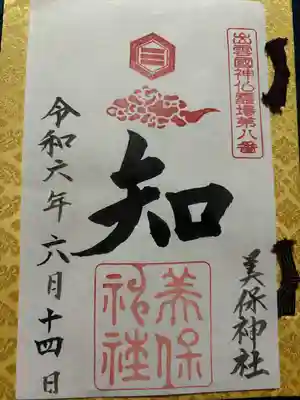 出雲國神仏霊場第八番
美保神社
知
美保
神社
令和六年 六月十四日